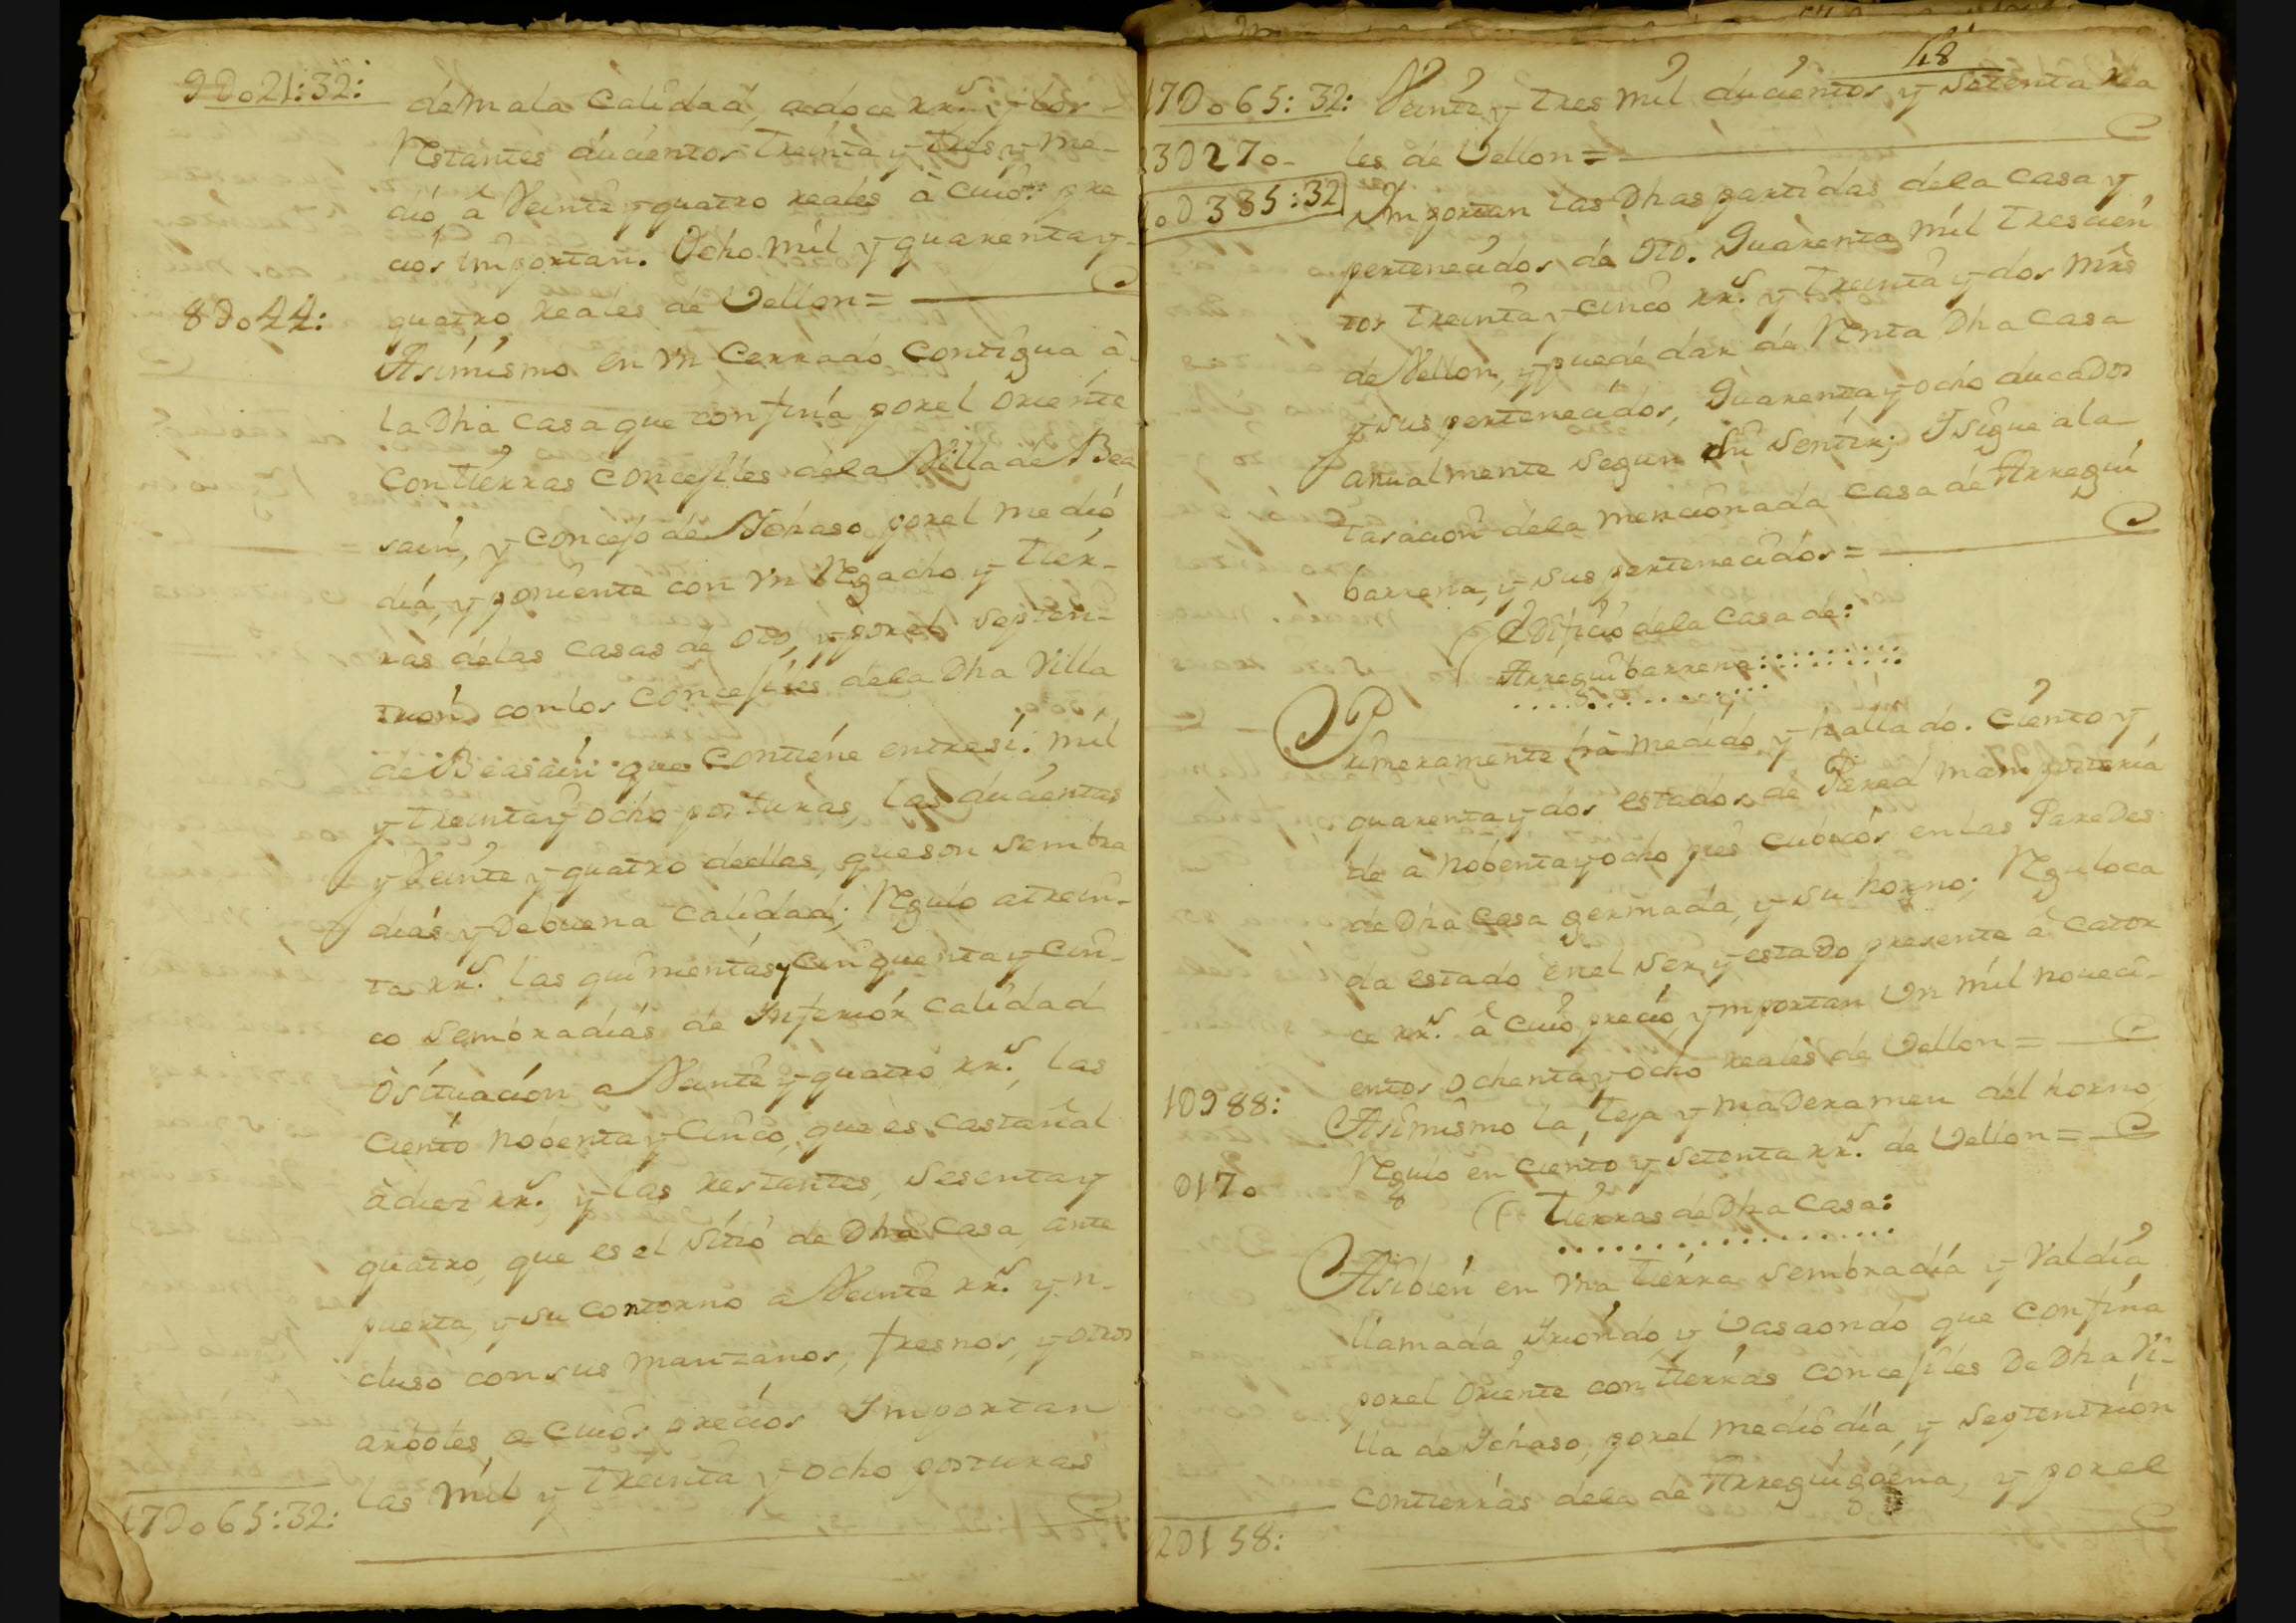 9D021:32:
de mala Calidad, a doce rrs. y los
Restantes ducientos treinta y tres y me-
dio, à Veinte y quatro reales à cuios pre
cios importan. Ocho mil y quarenta y
8D044: quatro reales de Vellon =
Asimismo en Vn Cerrado Contigua à
la Dha Casa que confina por el oriente
Con tierras Concejiles de la Villa de Bea
sain, y Concejo de Ichaso por el medio
dia, y poniente con Vn Regacho y tier-
ras de las Casas de Oto, y por el Septen-
trion con los Concejiles de la Dha Villa
de Beasain que Contiene entre si. mil
y treinta y ocho posturas, las ducientas
y Veinte y quatro de ellas, que son sembra
dias y de buena Calidad; Reguló a trein-
ta rrs. las quinientas y cinquenta y cin-
co sembradias de Inferior Calidad
ò situacion a Veinte y quatro rrs., las
Ciento nobenta y Cinco, que es Castañal
à diez rrs. y las restantes, sesenta y
quatro, que es el sitio de Dha Casa, ante
puerta, y su contorno a Veinte rrs. y n-
cluso con sus manzanos, fresnos, y otros
arboles, a cuios precios Importan
las mil y treinta y ocho posturas
17D065:32:
48
17D065:32: Veinte y tres mil ducientos, y setenta rea
23D270- les de Vellon =
40D335:32 Importan las Dhas partidas de la Casa y
pertenecidos de Oto. Quarenta mil trescien
tos treinta y cinco rrs. y treinta y dos mrs
de Vellon, y puede dar de Renta Dha Casa
y sus pertenecidos, Quarenta y ocho ducados
anualmente segun su sentir; I sigue a la
tasacion de la mencionada Casa de Arregui
barrena, y sus pertenecidos =
Edificio de la Casa de:
Arreguibarrena:
Primeramente ha medido y hallado. Ciento y
quarenta y dos estados de Pared mamposteria
de à nobenta y ocho pies cubicos en las Paredes
de Dha Casa germada, y su horno; Regulo ca
da estado en el ser y estado presente à Cator
ce rrs. à cuio precio, ymportan Vn mil noueci-
entos ochenta y ocho reales de Vellon =
1D988: Asimismo la teja y maderamen del horno
D170 Reguló en ciento y setenta rrs. de Vellon =
Tierras de Dha Casa:
Asibien en Vna tierra sembradia y Valdia
llamada Iriondo, y Vasaondo que confina
por el oriente con tierras Concejiles De Dha Vi-
lla de Ichaso, por el medio dia, y septentrion
con tierras de la de Arreguigoena, y por el
2D158: